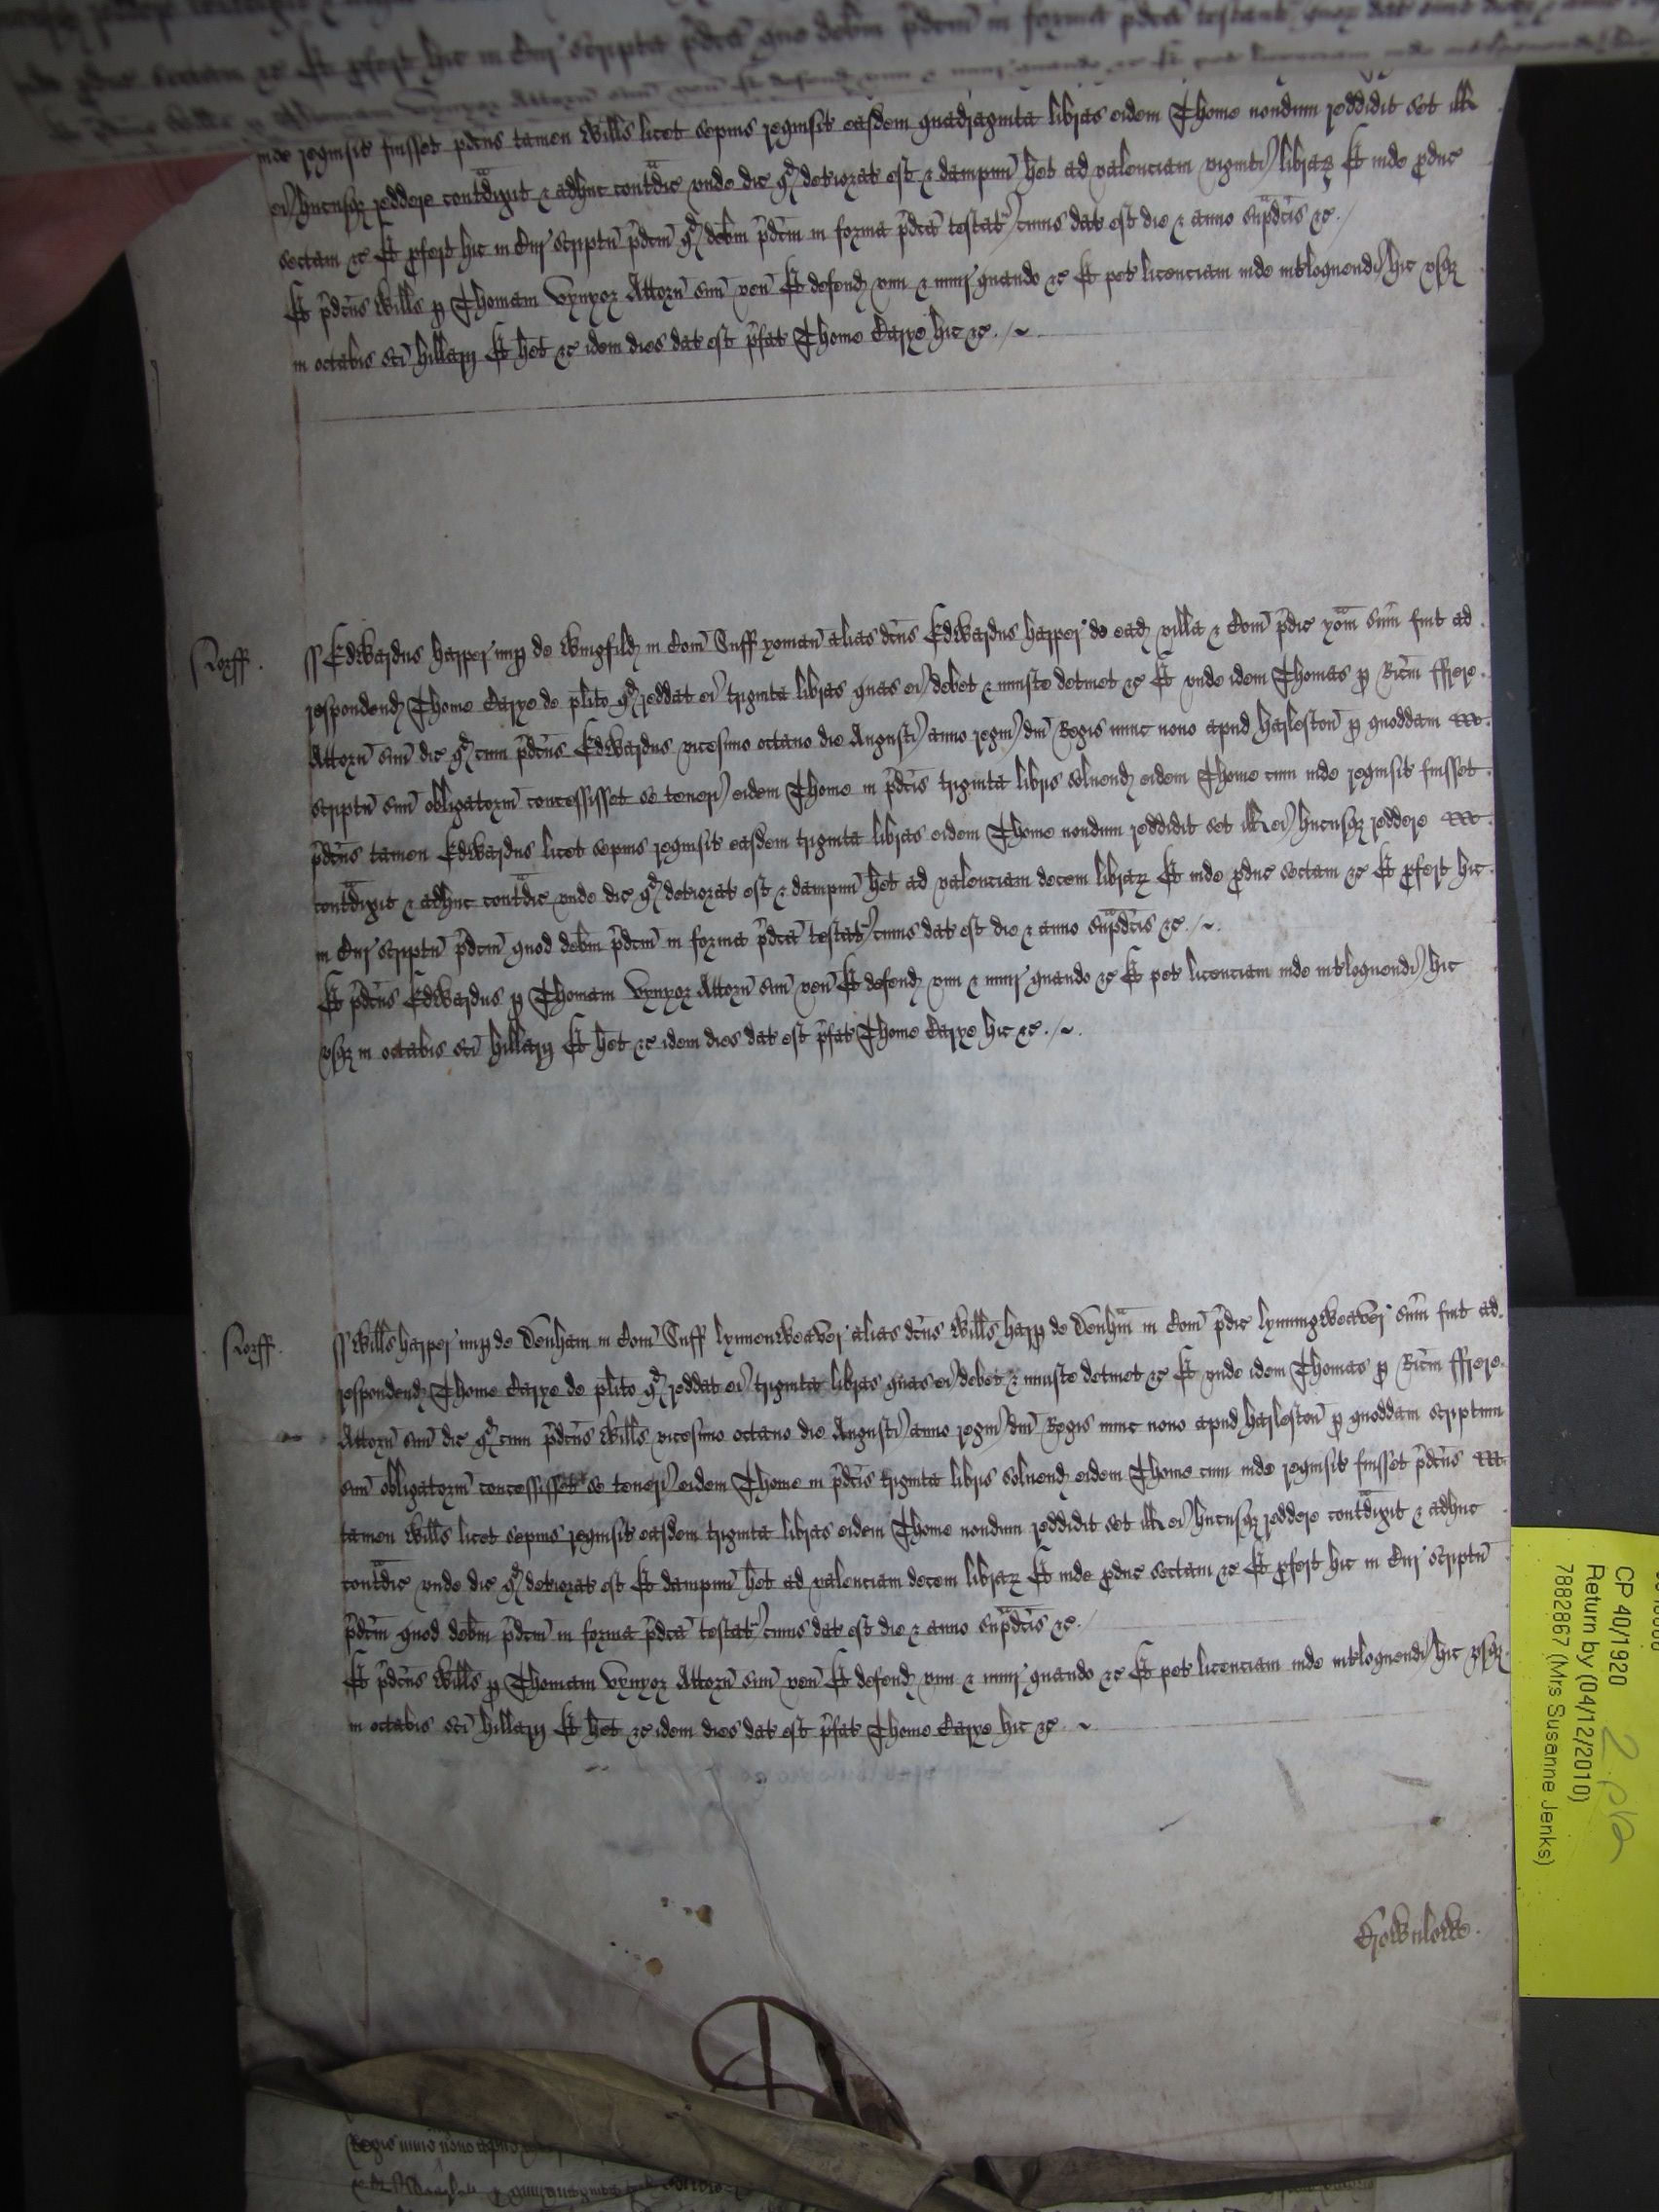 inde requisit fuisset p̄dc̄us tamen Wills licet sepius requisit easdem quadraginta libras eidem Thome nondum reddidit set ill
ei hucusq reddere cont̄dixit & adhuc cont̄dic unde dic qd deteriorat est & dampnū het ad valenciam viginti librar Et inde pduc
sectam &c Et pfert hic in Cur scriptū p̄dcm̄ qd debm p̄dcm̄ in forma p̄dca testat cuius dat est die & anno sup̄dcis &c
Et p̄dc̄us Wills p Thomam Vynyor Attorn̄ suū ven̄ Et defend vim & iniur quando &c Et pet licenciam inde int̄loquendi hic usq
in octabis sc̄i hillarij Et het &c idem dies dat est p̄fat Thome Carye hic &c
Norff
ss Edwardus harper nup de Wingfild in Com̄ Suff yoman̄ alias dc̄us Edwardus harper de ead villa & Com̄ p̄dic yom̄ sum̄ fuit ad
respondend Thome Carye de plito qd reddat ei triginta libras quas ei debet & iniuste detinet &c Et unde idem Thomas p Ric̄m ffrere
Attorn̄ suū dic qd cum p̄dc̄us Edwardus vicesimo octavo die Augusti anno regni dn̄i Regis nunc nono apud harleston̄ p quoddam
scriptū suū obligatoriū concessisset se teneri eidem Thome in p̄dcis triginta libris solvend eidem Thome cum inde requisit fuisset
p̄dc̄us tamen Edwardus licet sepius requisit easdem triginta libras eidem Thome nondum reddidit set ill ei hucusq reddere
cont̄dixit & adhuc cont̄dic unde dic qd deteriorat est & dampnū het ad valenciam decem librar Et inde pduc sectam &c Et pfert hic
in Cur scriptū p̄dcm̄ quod debm p̄dcm̄ in forma p̄dca testat cuius dat est die & anno sup̄dcis &c
Et p̄dc̄us Edwardus p Thomam Vynyor Attorn̄ suū ven̄ Et defend vim & iniur quando &c Et pet licenciam inde int̄loquendi hic
usq in octabis sc̄i hillarij Et het &c idem dies dat est p̄fat Thome Carye hic &c
Norff
ss Wills harper nup de Denham in Com̄ Suff lynnenweaver alias dc̄us Wills harp de Denhm̄ in Com̄ p̄dic lynningweaver sum̄ fuit ad
respondend Thome Carye de plito qd reddat ei triginta libras quas ei debet & iniuste detinet &c Et unde idem Thomas p Ric̄m ffrere
Attorn̄ suū dic qd cum p̄dc̄us Wills vicesimo octavo die Augusti anno regni dn̄i Regis nunc nono apud harleston̄ p quoddam scriptum
suū obligatoriū concessisset se teneri eidem Thome in p̄dcis triginta libris solvend eidem Thome cum inde requisit fuisset p̄dc̄us
tamen Wills licet sepius requisit easdem triginta libras eidem Thome nondum reddidit set ill ei hucusq reddere cont̄dixit & adhuc
cont̄dic unde dic qd deteriorat est Et dampnū het ad valenciam decem librar Et inde pduc sectam &c Et pfert hic in Cur scriptū
p̄dcm̄ quod debm p̄dcm̄ in forma p̄dca testat cuius dat est die & anno sup̄dcis &c
Et p̄dc̄us Wills p Thomam Vynyor Attorn̄ suū ven̄ Et defend vim & iniur quando &c Et pet licenciam inde int̄loquendi hic usq
in octabis sc̄i hillarij Et het &c idem dies dat est p̄fat Thome Carye hic &c
CP 40/1920
Return by (04/12/2010)
7882867 (Mrs Susanne Jenks)